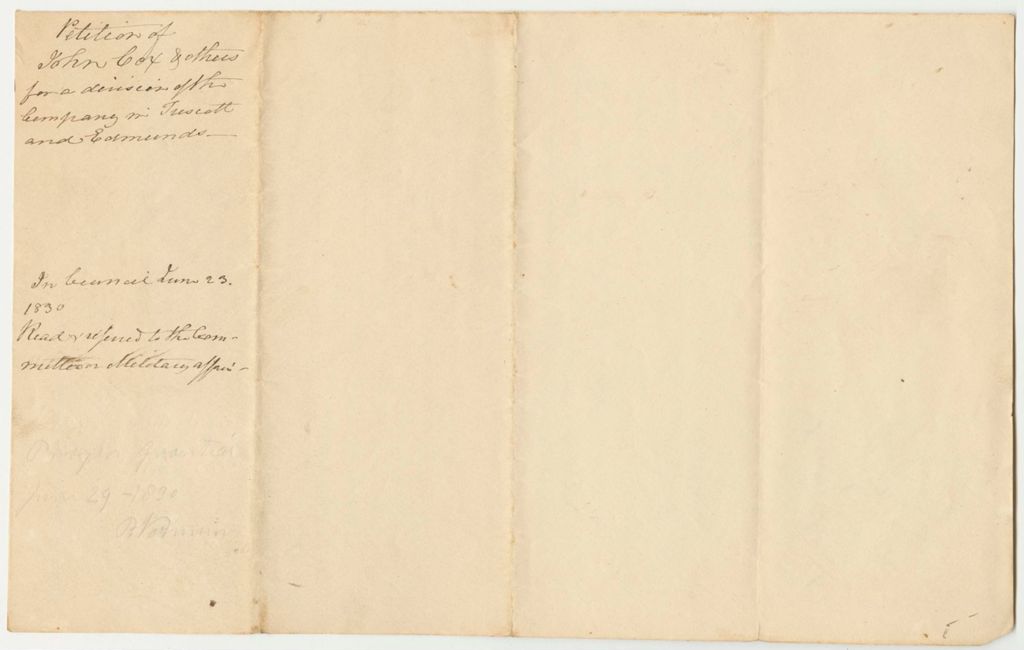 Petition of
John Cox & others
for a division of the
Company in Trescott
and Edmunds—
In Council June 23.
1830
Read & referred to the Com-
mittee on Military affairs
Prayer granted
June 29 - 1830